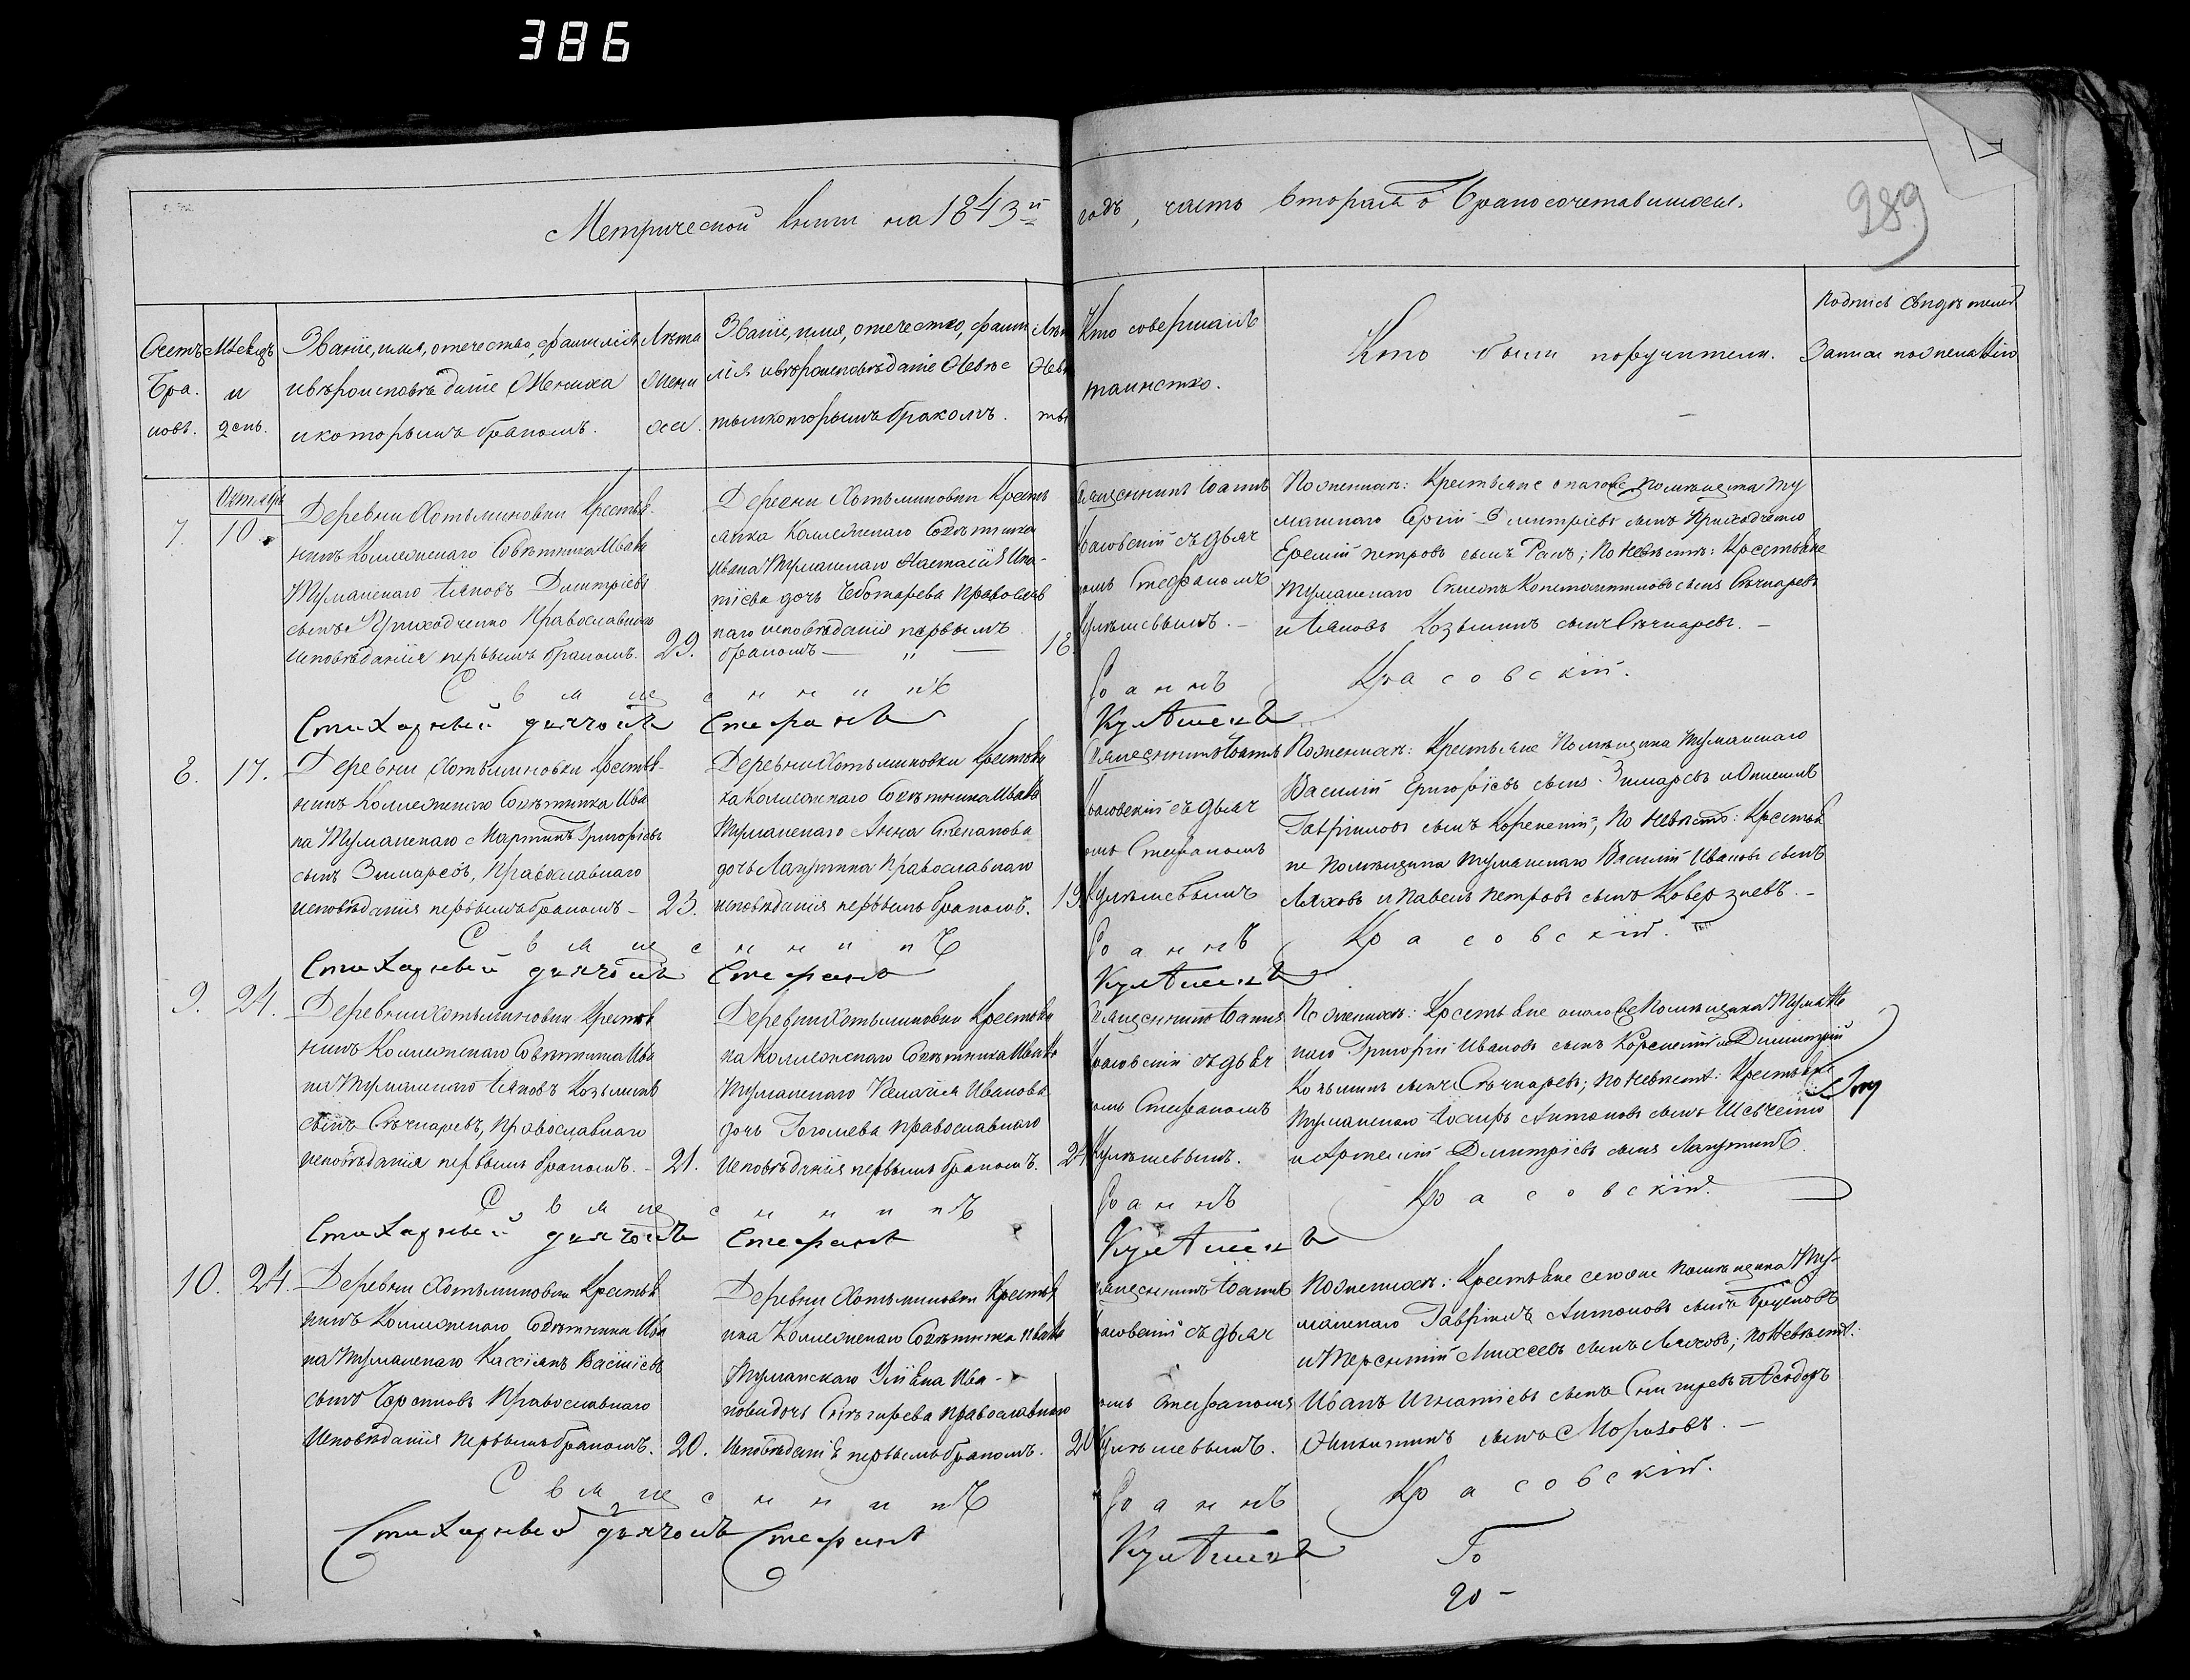 386
Метрической книги на 1843й годъ, часть вторая о бракосочетавшихся.
289
Счетъ бра-ковъ.
Мѣсяцъ и день.
Званіе, имя, отечество, фамилія
и вѣроисповѣданіе Жениха
и которымъ бракомъ.
Лѣта Жениха.
Званіе, имя, отечество, фами
лія и вѣроисповѣданіе Невѣс
ты и которымъ бракомъ.
Лѣта Невѣсты
Кто совершалъ
таинство.
Кто были поручители.
Подпись свидѣтелей
записи по желанію
7.
Октября
10.
Деревни Хотьминовки Крестья-
нинъ Коллежскаго Совѣтника Ивана
Туманскаго Іяковъ Димитріевъ
сынъ Приходченко Православнаго
исповѣданія первымъ бракомъ.
29.
Деревни Хотьминовки Кресть
янка Коллежскаго Совѣтника
Ивана Туманскаго Настасія Игна-
тіева дочь Чеботарева Православ
наго исповѣданія первымъ
бракомъ — " —
18.
Священникъ Іоаннъ
Красовскій съ дьяч
комъ Стефаномъ
Кулѣшевымъ. —
По женихѣ: Крестьяне онагоже помѣщика Ту
манскаго Сергій Димитріевъ сынъ Приходченко
Еремій Петровъ сынъ ; По невѣстѣ: Крестьяне
Туманскаго Константиновъ сынъ Сѣчкаревъ
и Іяковъ Козьминъ сынъ Сѣчкаревъ. —
Священникъ Іоаннъ Красовскій.
Стихарный дьячокъ Стефанъ Кулѣшевъ
8.
17.
Деревни Хотьминовки Крестья-
нинъ Коллежскаго Совѣтника Ива
на Туманскаго Мартинъ Григорьевъ
сынъ Зимаревъ, Православнаго
исповѣданія первымъ бракомъ —
23.
Деревни Хотьминовки Крестьян
ка Коллежскаго Совѣтника Ивана
Туманскаго Анна Степанова
дочь Лагутина Православнаго
исповѣданія первымъ бракомъ.
19.
Священникъ Іоаннъ
Красовскій съ дьяч
комъ Стефаномъ
Кулѣшевымъ
По женихѣ: Крестьяне помѣщика Туманскаго
Василій Григорьевъ сынъ Зимаревъ и Онисимъ
Гавріиловъ сынъ Коренскій; По невѣстѣ: Крестья
не помѣщика Туманскаго Василій Ивановъ сынъ
Ляховъ и Павелъ Петровъ сынъ Коверзневъ. —
Священникъ Іоаннъ Красовскій.
Стихарный дьячокъ Стефанъ Кулѣшевъ
9.
24.
Деревни Хотьминовки Крестья
нинъ Коллежскаго Совѣтника Ива
на Туманскаго Іяковъ Козьминъ
сынъ Сѣчкаревъ, Православнаго
исповѣданія первымъ бракомъ. —
21.
Деревни Хотьминовки Крестьян
ка Коллежскаго Совѣтника Ивана
Туманскаго Пелагія Иванова
дочь Гоголева православнаго
исповѣданія первымъ бракомъ.
Священникъ Іоаннъ
Красовскій съ дьяч
комъ Стефаномъ
Кулѣшевымъ.
По женихѣ: Крестьяне онагоже помѣщика Туман
скаго Григорій Ивановъ сынъ Коренскій и Димитрій
Козьминъ сынъ Сѣчкаревъ; По невѣстѣ: Крестьяне
Туманскаго Іосифъ Антоновъ сынъ Шевченко
и Артемій Димитріевъ сынъ Лагутинъ.
Священникъ Іоаннъ Красовскій.
Стихарный дьячокъ Стефанъ Кулѣшевъ
10.
24.
Деревни Хотьминовки Крестья
нинъ Коллежскаго Совѣтника Ива
на Туманскаго Касіянъ Васіліевъ
сынъ Православнаго
исповѣданія первымъ бракомъ.
20.
Деревни Хотьминовки Крестья
нка Коллежскаго Совѣтника Ивана
Туманскаго Уліяна Ива-
нова дочь Снѣгирева православнаго
исповѣданія первымъ бракомъ.
20
Священникъ Іоаннъ
Красовскій съ дьяч
комъ Стефаномъ
Кулѣшевымъ.
По женихѣ: Крестьяне сегоже помѣщика Ту-
манскаго Гавріилъ Антоновъ сынъ
и Терентій Михеевъ сынъ Ляховъ; По невѣстѣ:
Иванъ Игнатіевъ сынъ Снигиревъ и Ѳеодоръ
Никитинъ сынъ Морозовъ. —
Священникъ Іоаннъ Красовскій.
Стихарный дьячокъ Стефанъ Кулѣшевъ